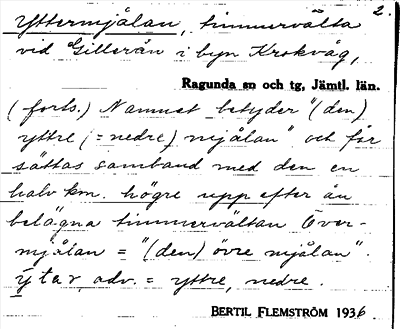 2.
Yttermjålan, timmervälta
vid Gillerån i byn Krokvåg,
Ragunda sn och tg, Jämtl. län.
(forts.) Namnet betyder "(den)
yttre (= nedre) mjålan" och får
sättas samband med den en
halv km. högre upp efter ån
belägna timmervältan Över-
mjålan = "(den) övre mjålan".
ytar, adv. = yttre, nedre.
BERTIL FLEMSTRÖM 1936